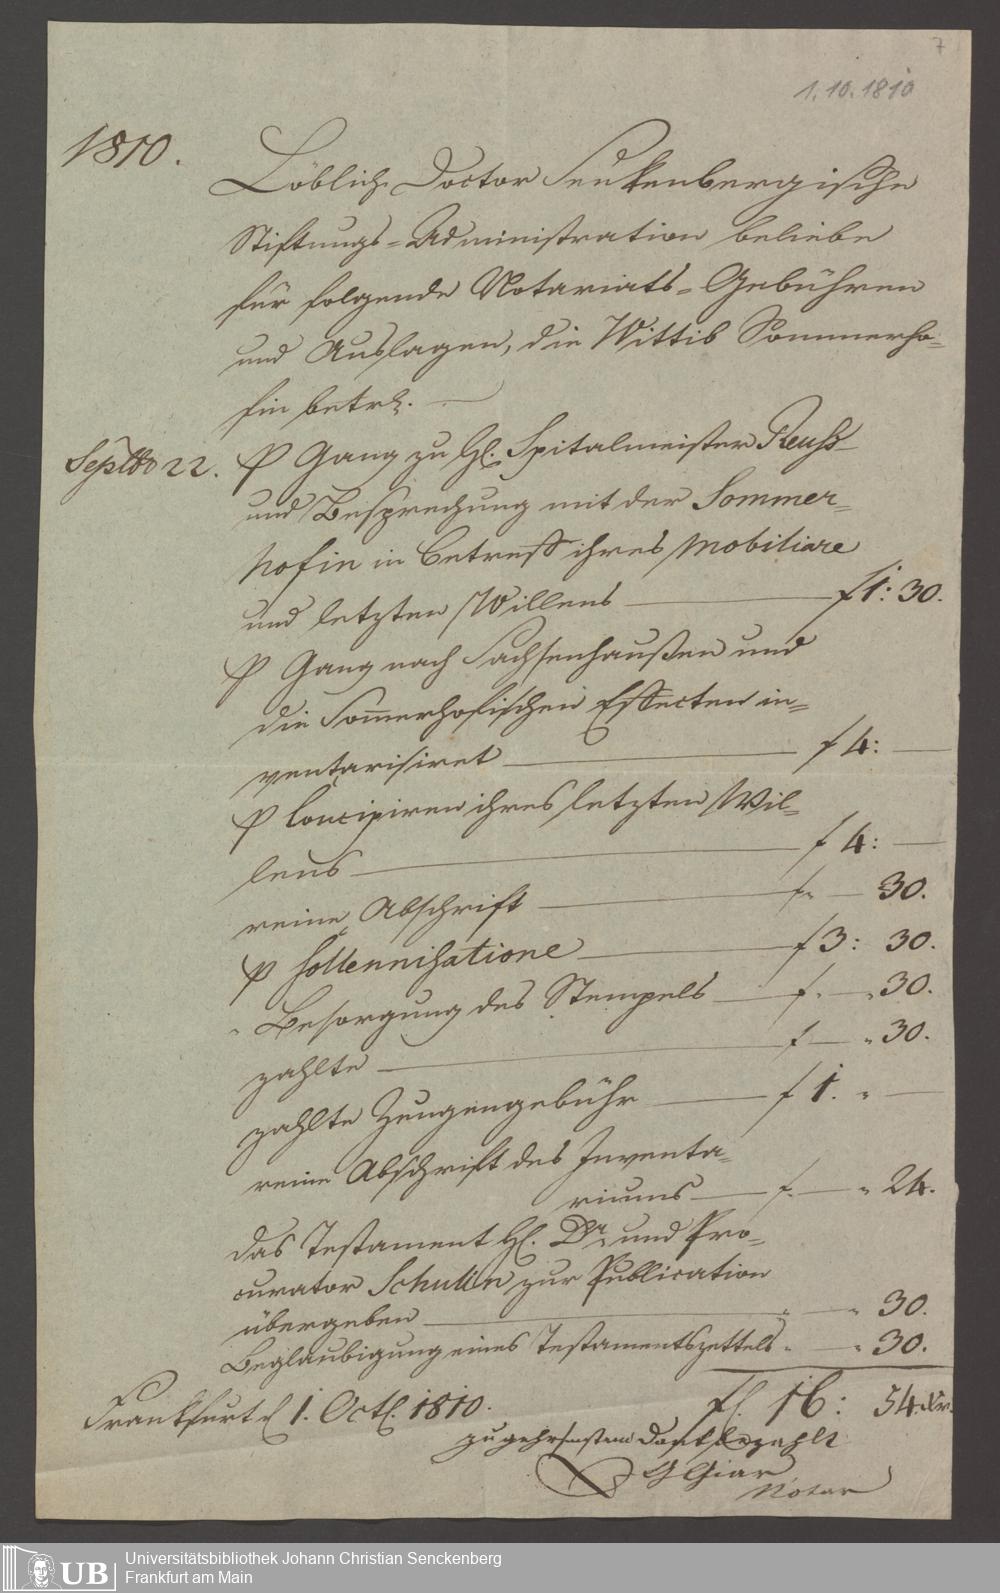 7
1.10.1810
1810.
Löblich Doctor Senkenbergische
Stiftungs=Administration beliebe
für folgende Notariats=Gebühren
und Auslagen, die Wittib Sommerho=
fin betrh.
Septbr 22.
p Gang zu H. Spitalmeister Reuss
und Besprechung mit der Sommer=
hofin in Betreff ihres Mobiliare
und letzten Willens f 1: 30.
p Gang nach Sachsenhaußen und
die Som̅erhofischen Effecten in=
ventarisiret f 4: —
p Concipiren ihres letzten Wil=
lens f 4: —
reine Abschrift f „ — 30.
p Sollennisatione f 3: 30.
„ Besorgung des Stempels f „ — „ 30.
zahlte f — „ 30.
zahlte Zeugengebühr f 1. „ —
reine Abschrift des Inventa=
riums f. — „ 24.
das Testament H. Dr. und Pro=
curator Schulin zur Publication
übergeben „ — „ 30.
Beglaubigung eines Testamentszettels „ — „ 30.
Frankfurt d 1. Oct. 1810.
fl. 16: 54 Xr.
zu gehorsamstem Dank bezahlt
Giar
Notar
UB
Universitätsbibliothek Johann Christian Senckenberg
Frankfurt am Main